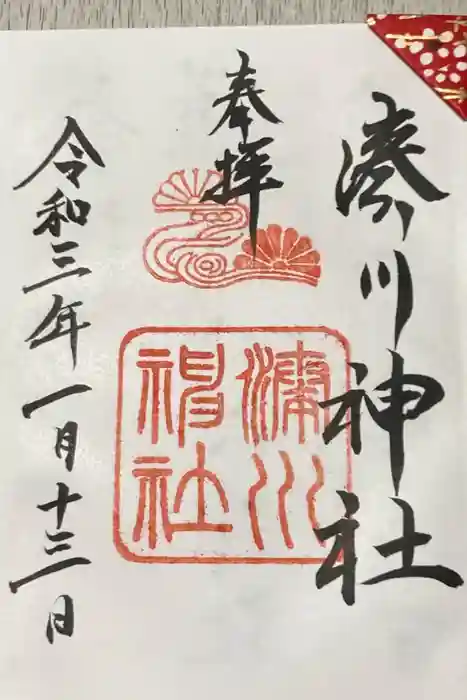 湊川神社
奉拝
湊川
神社
令和三年一月十三日